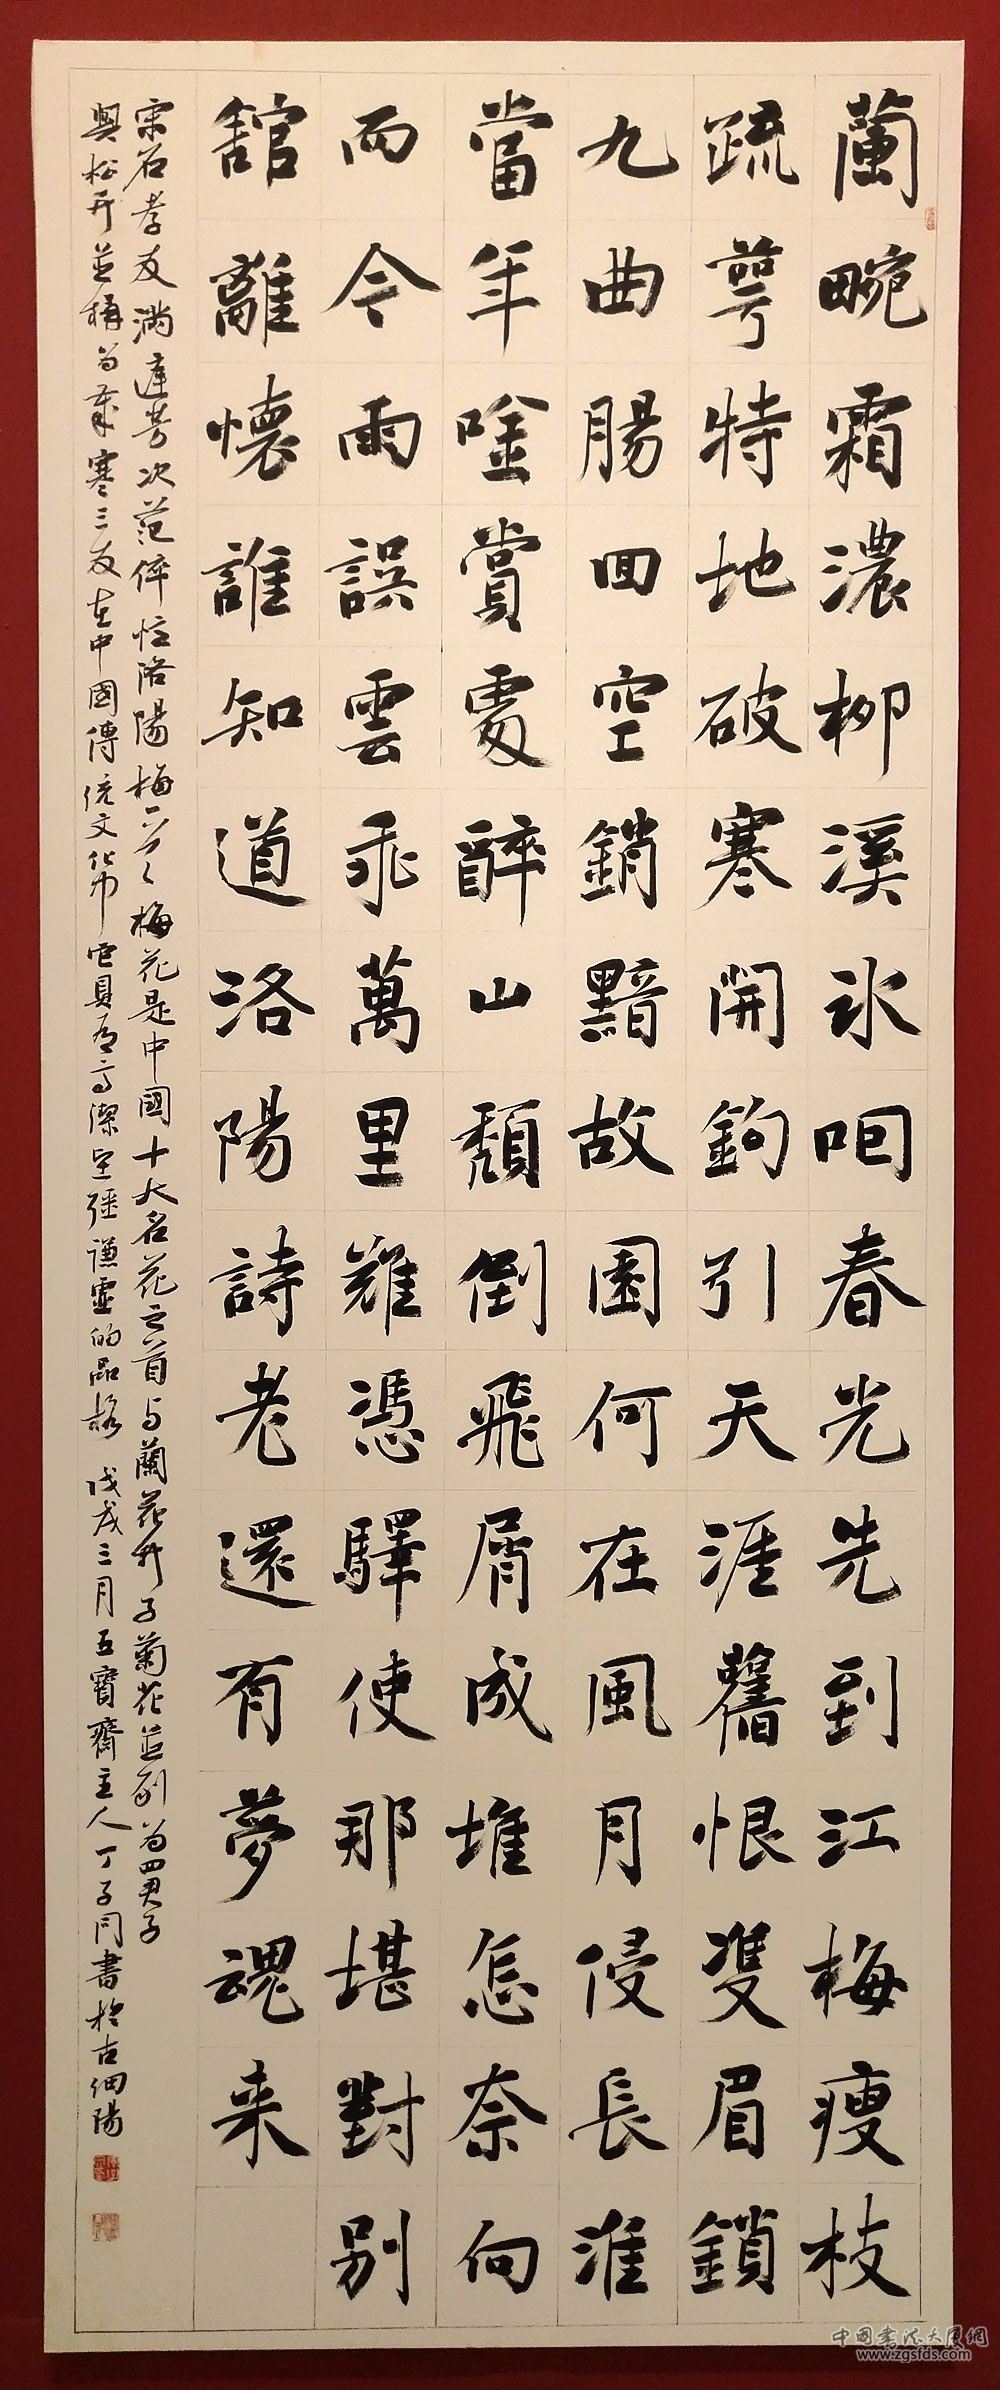 蘭畹霜濃柳溪氷咽春光先到江梅瘦枝
疏萼特地破寒開鉤引天涯舊恨雙眉鎖
九曲腸回空銷黯故園何在風月侵長淮
當年唫賞處醉山頹倒飛屑成堆怎奈向
而今雨誤雲乖萬里難憑驛使那堪對別
舘離懷誰知道洛陽詩老還有夢魂来
宋石孝友滿庭芳次范倅憶洛陽梅一首梅花是中國十大名花之首与蘭花竹子菊花並列為四君子
與松竹並稱為歲寒三友在中國傳统文化中它具有高潔堅强謙虛的品格 戊戌三月五寶齋主人丁子同書於古細陽
中国书法大厦網
www.zgsfds.com